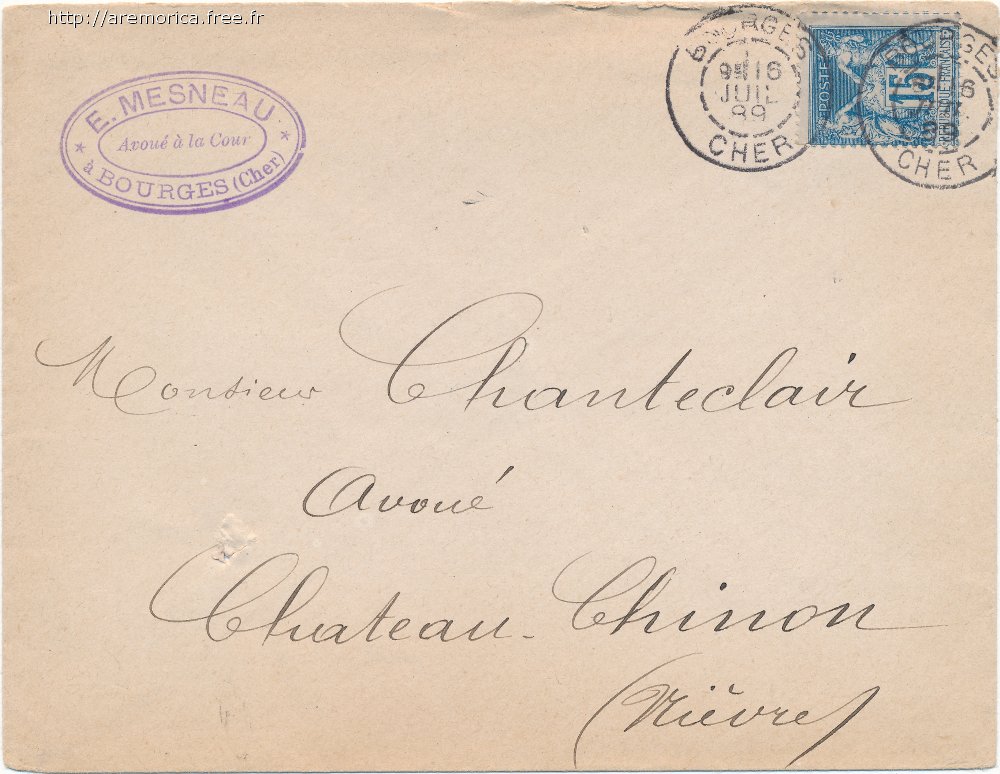 http://aremorica.free.fr
E. MESNEAU
Avoué à la Cour
à BOURGES (Cher)
BOURGES
16
JUIL
89
CHER
POSTE
15
REPUBLIQUE FRANÇAISE
BOURGES
89
CHER
Monsieur Chanteclair
Avoué
Chateau-Chinon
(Nièvre)